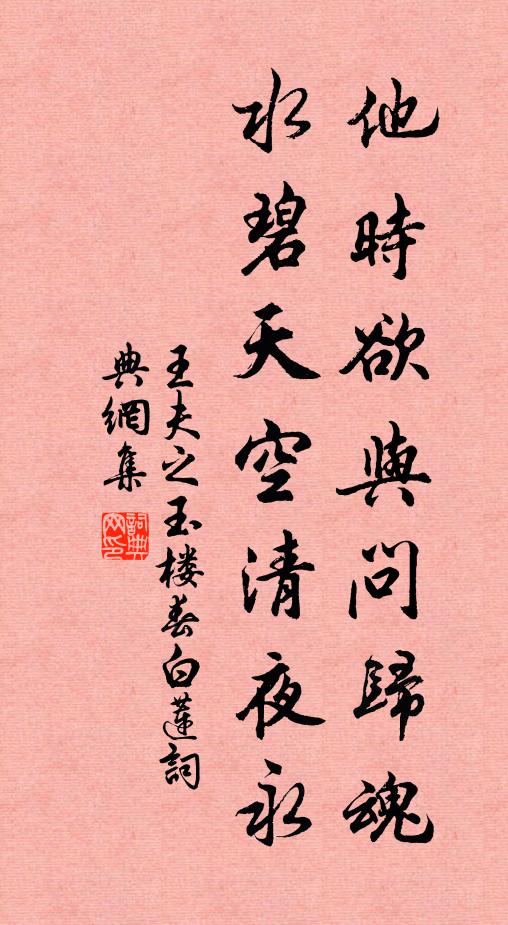 他時欲與問歸魂
水碧天空清夜永
王夫之玉楼春白蓮詞
典網集
詞典网印